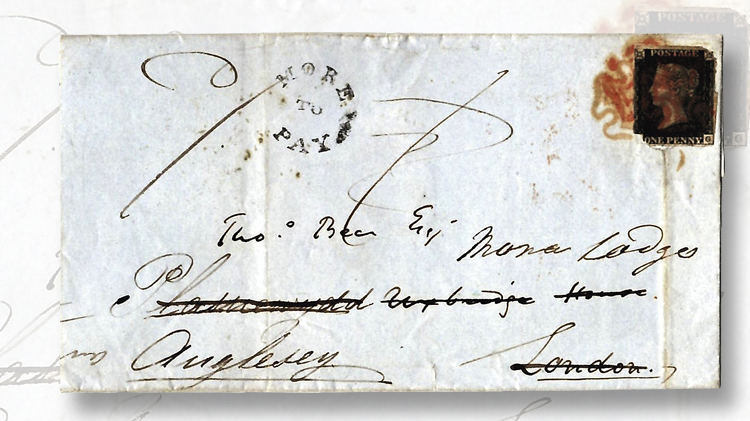 POSTAGE
MORE
TO
PAY
POSTAGE
ONE PENNY G
Thos. Beer Esq
Mona Lodge
Plasnewydd Uxbridge House.
Anglesey London.